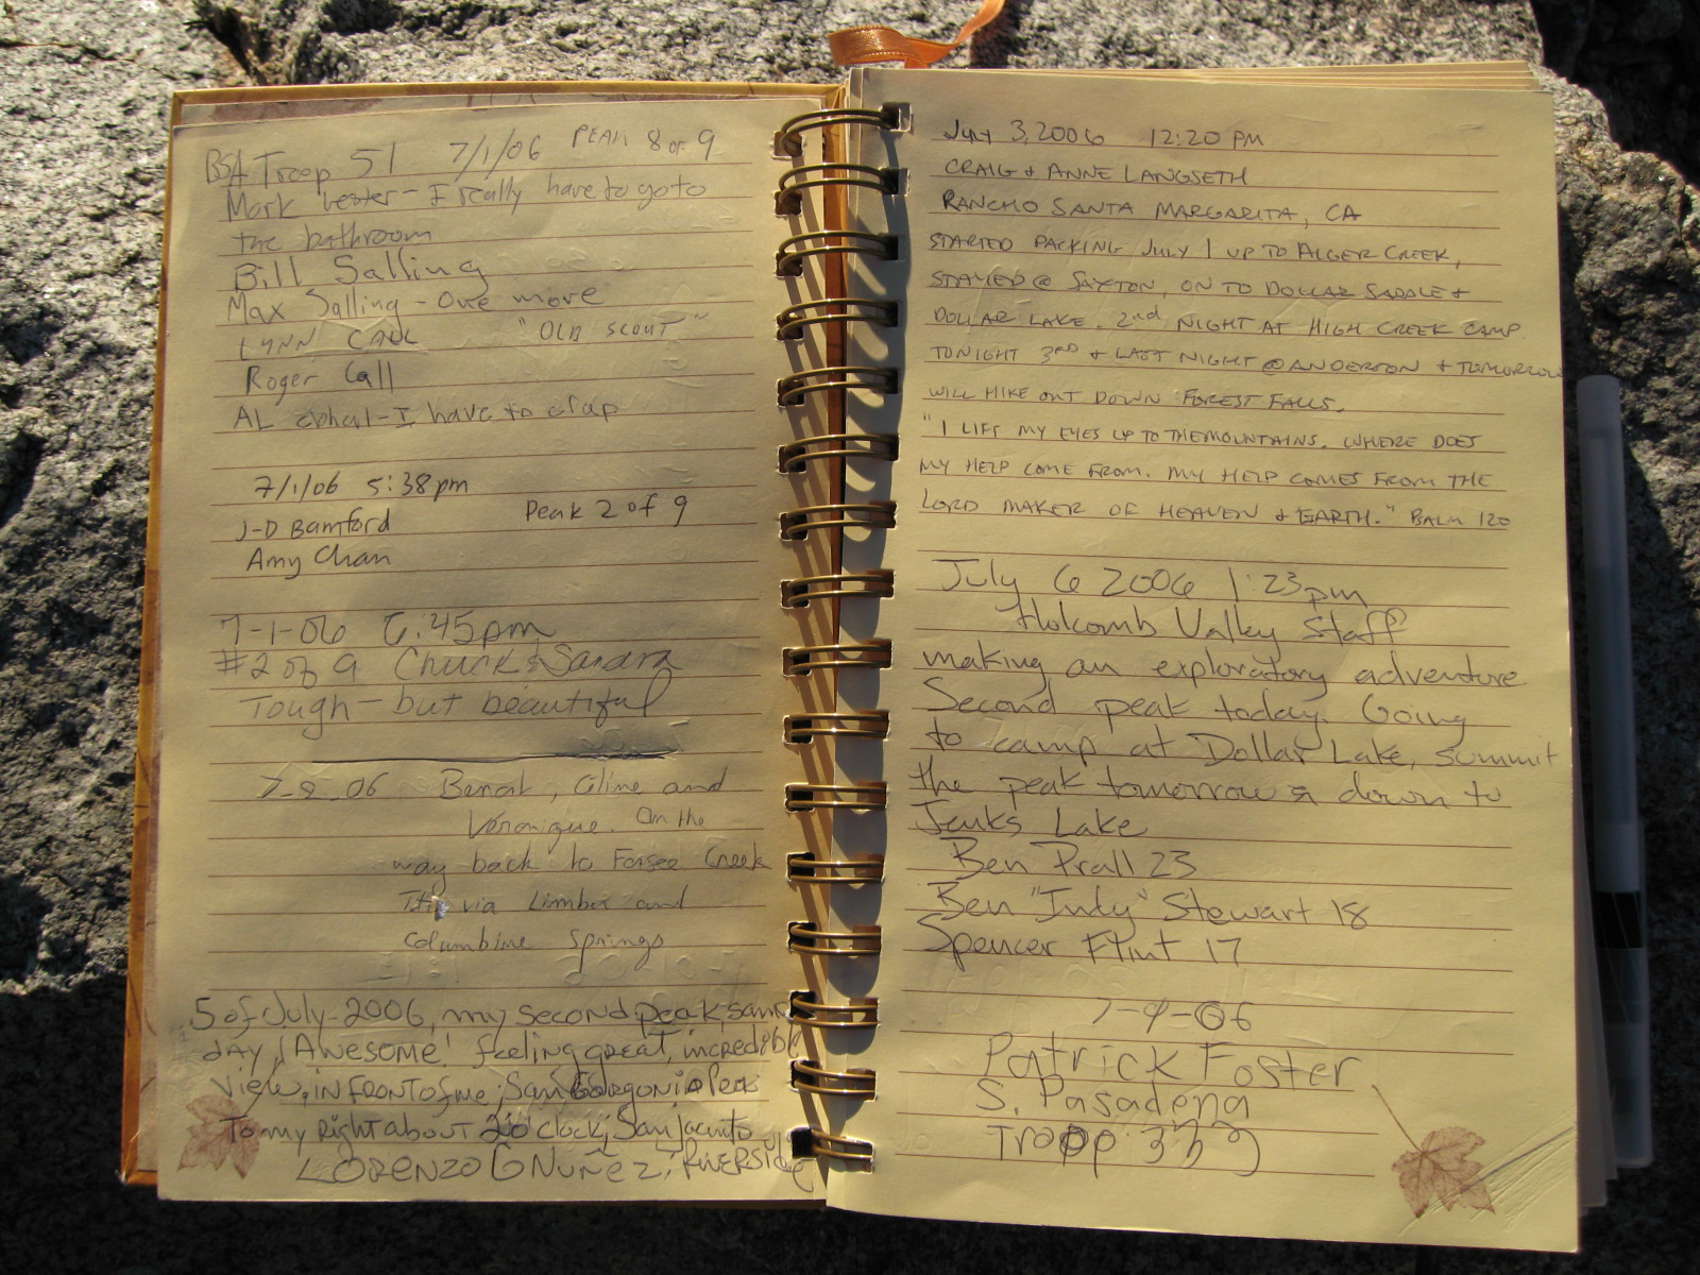 BSA Troop 51 7/1/06 PEAK 8 of 9
Mark - I really have to go to
the bathroom
Bill Salling
Max Salling - One more
LYNN "OLD SCOUT"
Roger Call
AL - I have to crap
7/1/06 5:38pm
J-D Bamford Peak 2 of 9
Amy Chan
7-1-06 6:45pm
#2 of 9 Chuck & Sandra
Tough - but beautiful
7-2-06 Benoit, Céline and
Véronique. On the
way back to Forsee Creek
via Limber and
Columbine Springs
5 of July-2006, my second peak, same
day, Awesome! feeling great, incredible
view, in front of me; San Gorgonio Peak
To my Right about 2 o'clock; San Jacinto
LORENZO G NUÑEZ, RIVERSIDE
JULY 3, 2006 12:20 PM
CRAIG & ANNE LANGSETH
RANCHO SANTA MARGARITA, CA
STARTED PACKING JULY 1 UP TO ALGER CREEK,
STAYED @ SAXTON, ON TO DOLLAR SADDLE &
DOLLAR LAKE. 2nd NIGHT AT HIGH CREEK CAMP
TONIGHT 3RD & LAST NIGHT @ ANDERSON & TOMORROW
WILL HIKE OUT DOWN FOREST FALLS.
"I LIFT MY EYES UP TO THE MOUNTAINS. WHERE DOES
MY HELP COME FROM. MY HELP COMES FROM THE
LORD MAKER OF HEAVEN & EARTH." PSALM 120
July 6 2006 1:23pm
Holcomb Valley Staff
making an exploratory adventure
Second peak today. Going
to camp at Dollar Lake, summit
the peak tomorrow & down to
Jenks Lake
Ben Prall 23
Ben "Indy" Stewart 18
Spencer Flint 17
7-9-06
Patrick Foster
S. Pasadena
Troop 333